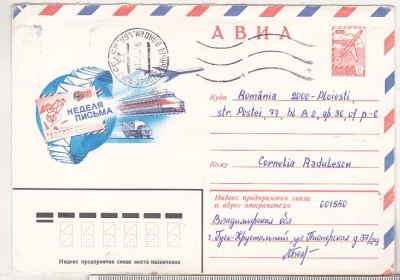 АВИА
НЕДЕЛЯ
ПИСЬМА
Куда România 2000-Ploiesti,
str. Postei, 77, bl. A 2, ap. 36, of. p-6
Кому Cornelia Radulescu
Индекс предприятия связи
и адрес отправителя 601550
Владимирская обл.
г. Гусь-Хрустальный, ул. Пионерская д.
Индекс предприятия связи места назначения